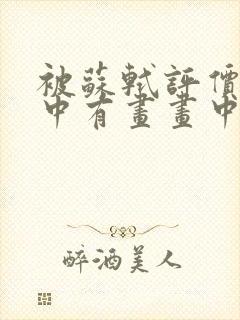 被蘇軾評價
中有畫畫中
醉酒美人